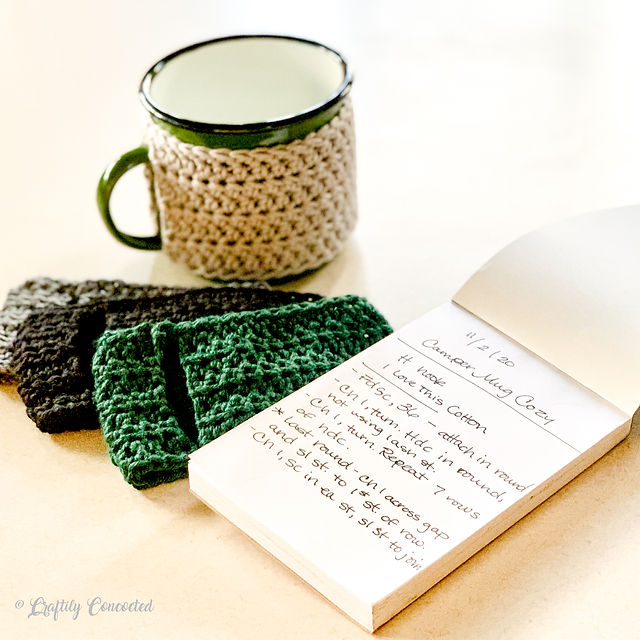 11/2/20
Camper Mug Cozy
H hook
I Love This Cotton
- Fdsc, 36 - attach in round
- Ch 1, turn. Hdc in round,
not using last st.
- Ch 1, turn. Repeat 7 rows
of hdc.
* Last round - ch 1 across gap
and sl st to 1st st of row.
- Ch 1, sc in ea st, sl st to join
© Craftily Concocted